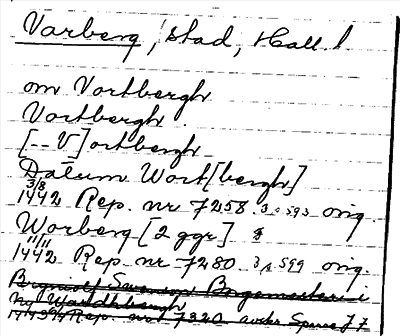 Varberg, stad, Hall. l
om Vortbergh
Vortbergh.
[--V]ortbergh
Datum Wort[bergh]
3/8
1442 Rep. nr 7258. 3, s 593 orig.
Worberg [2 ggr]
11/11
1442 Rep. nr 7280. 3, s 599 orig.
Swensson Borgemestere i
Ny Wardhbergh
Rep. nr 7320